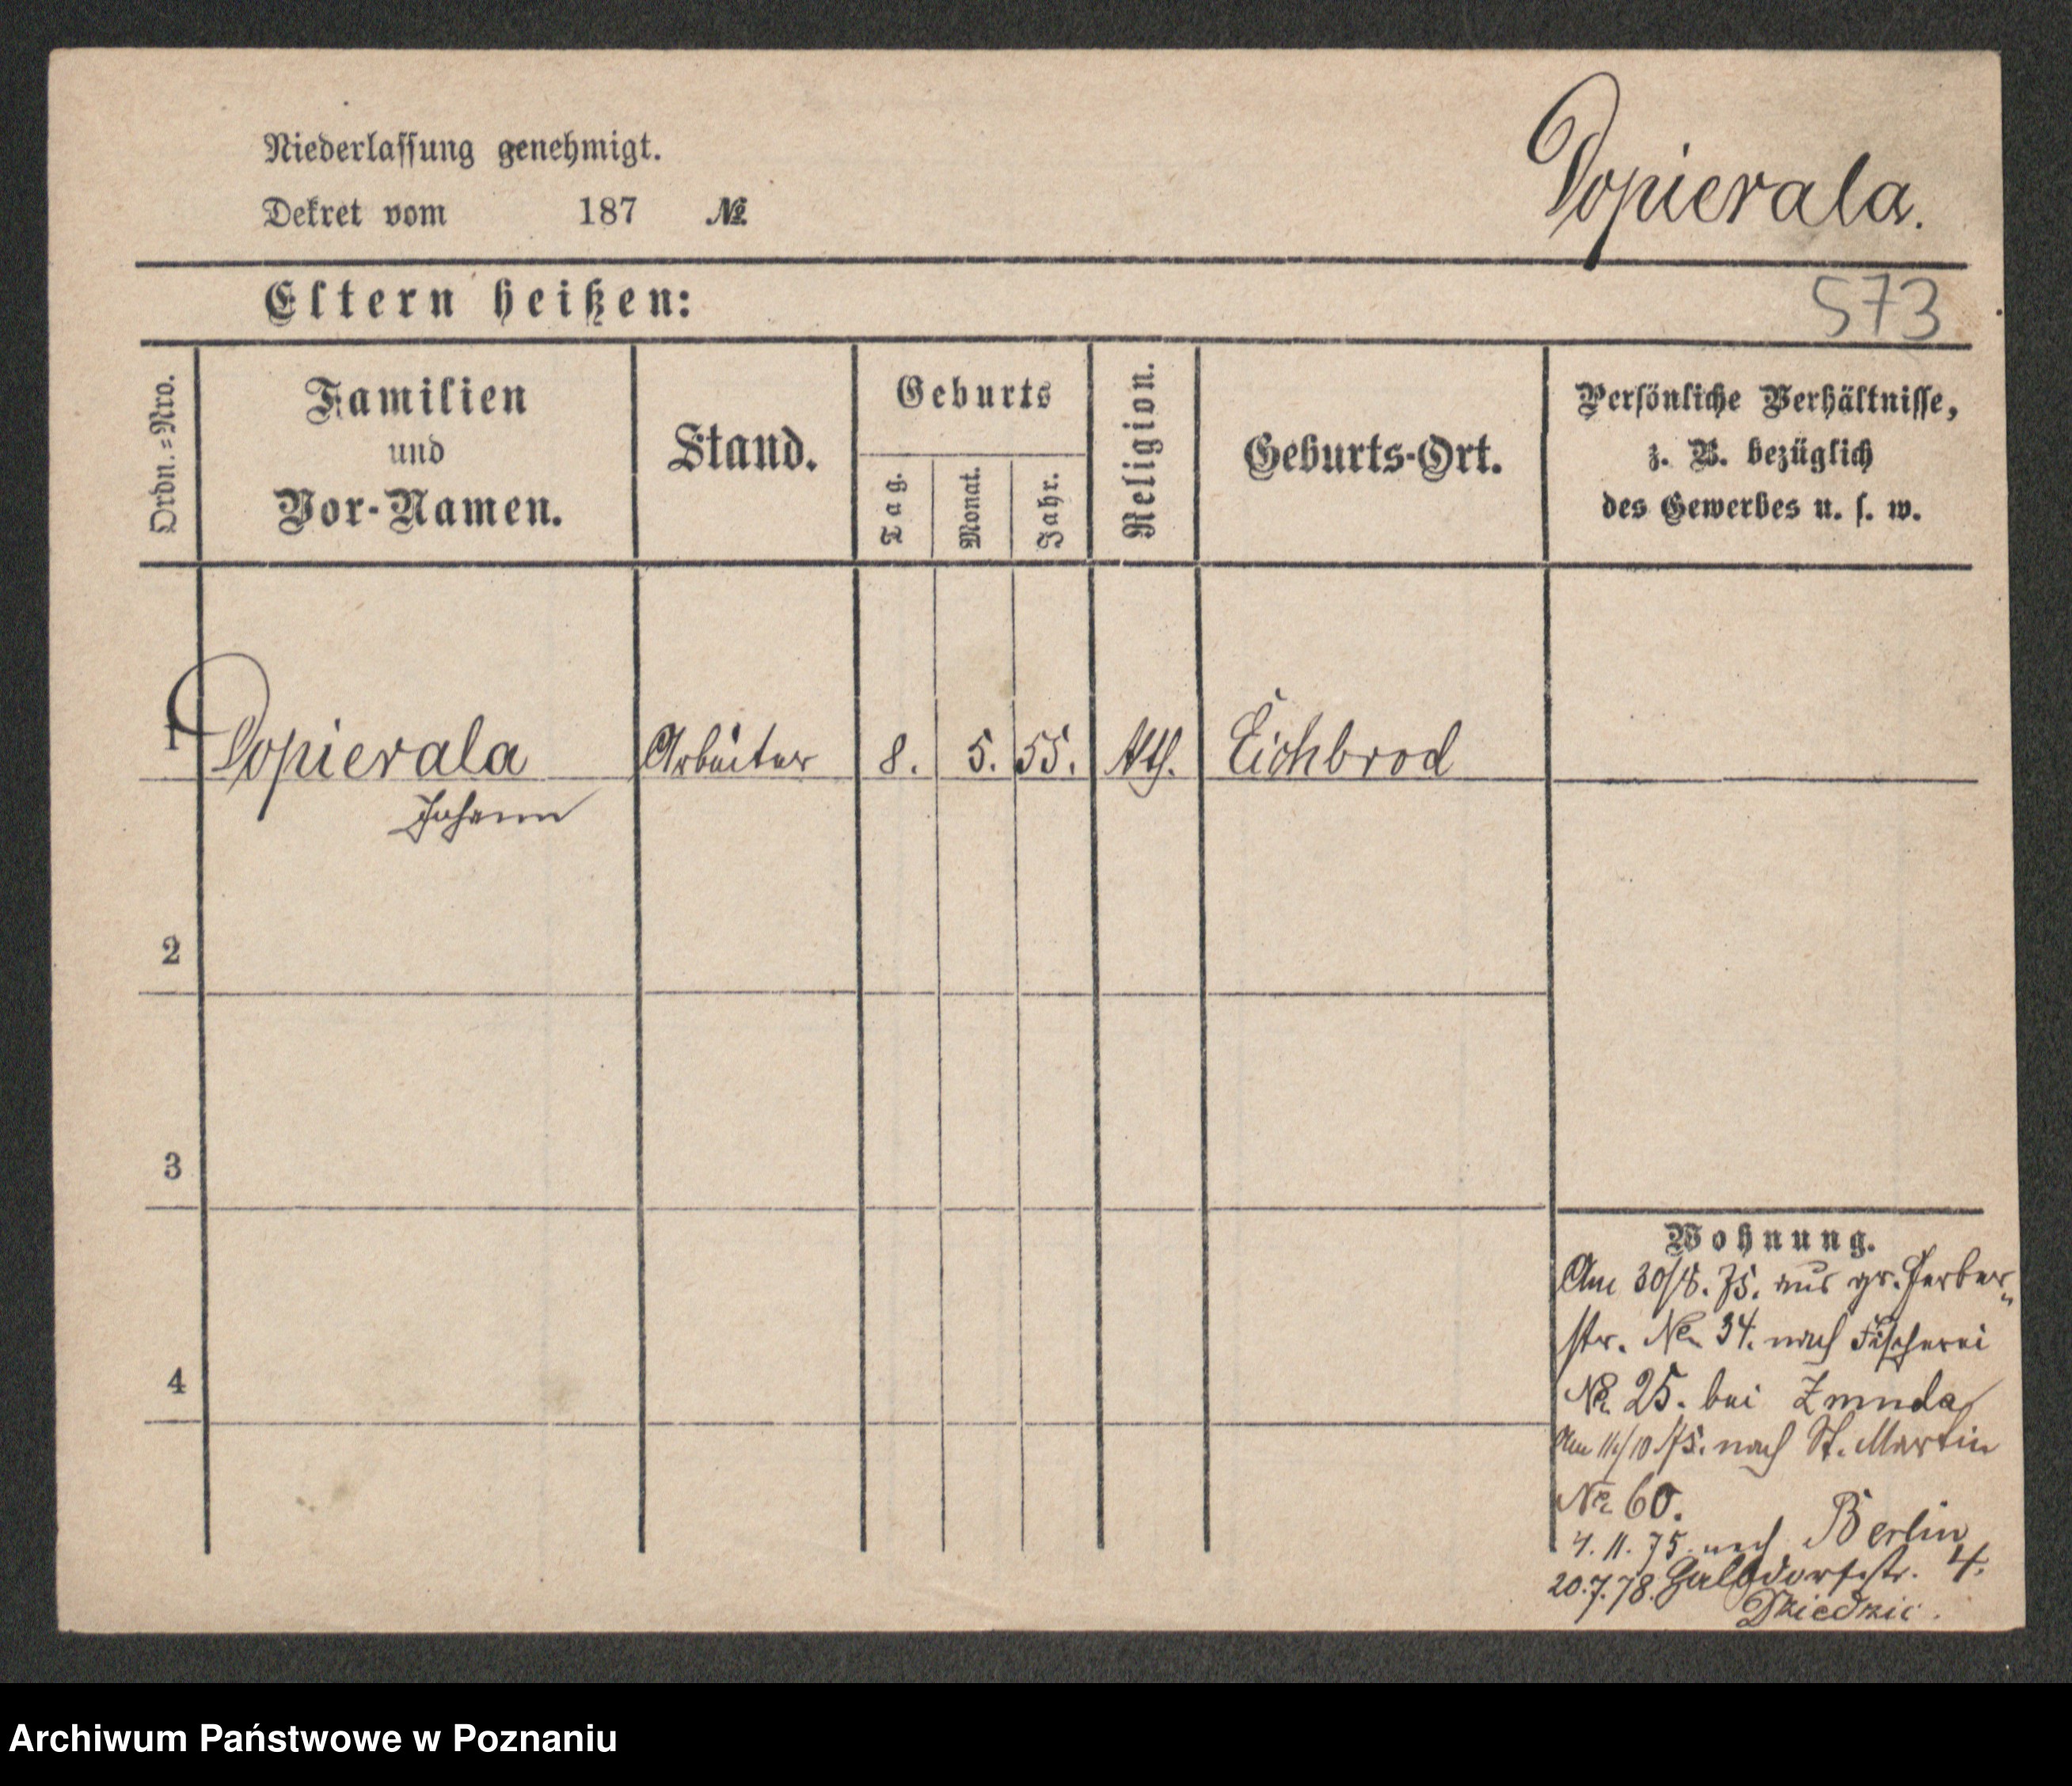 Niederlassung genehmigt.
Dekret vom 187 №
Dopierala.
Eltern heißen:
573
Ordn.=Nro.
Familien
und
Vor-Namen.
Stand.
Geburts
Tag.
Monat.
Jahr.
Religion.
Geburts-Ort.
Persönliche Verhältnisse,
z. B. bezüglich
des Gewerbes u. s. w.
1 Dopierala Arbeiter 8. 5. 55. kth. Eichbrod
Johann
2
3
4
Wohnung.
Am 30/8. 75. aus gr. Gerber-
str. No 34. nach Fischerei
No 25. bei Zmuda
Am 11/10 75. nach St. Martin
No 60.
4. 11. 75. nach Berlin
20.7.78. Halbdorfstr. 4.
Archiwum Państwowe w Poznaniu